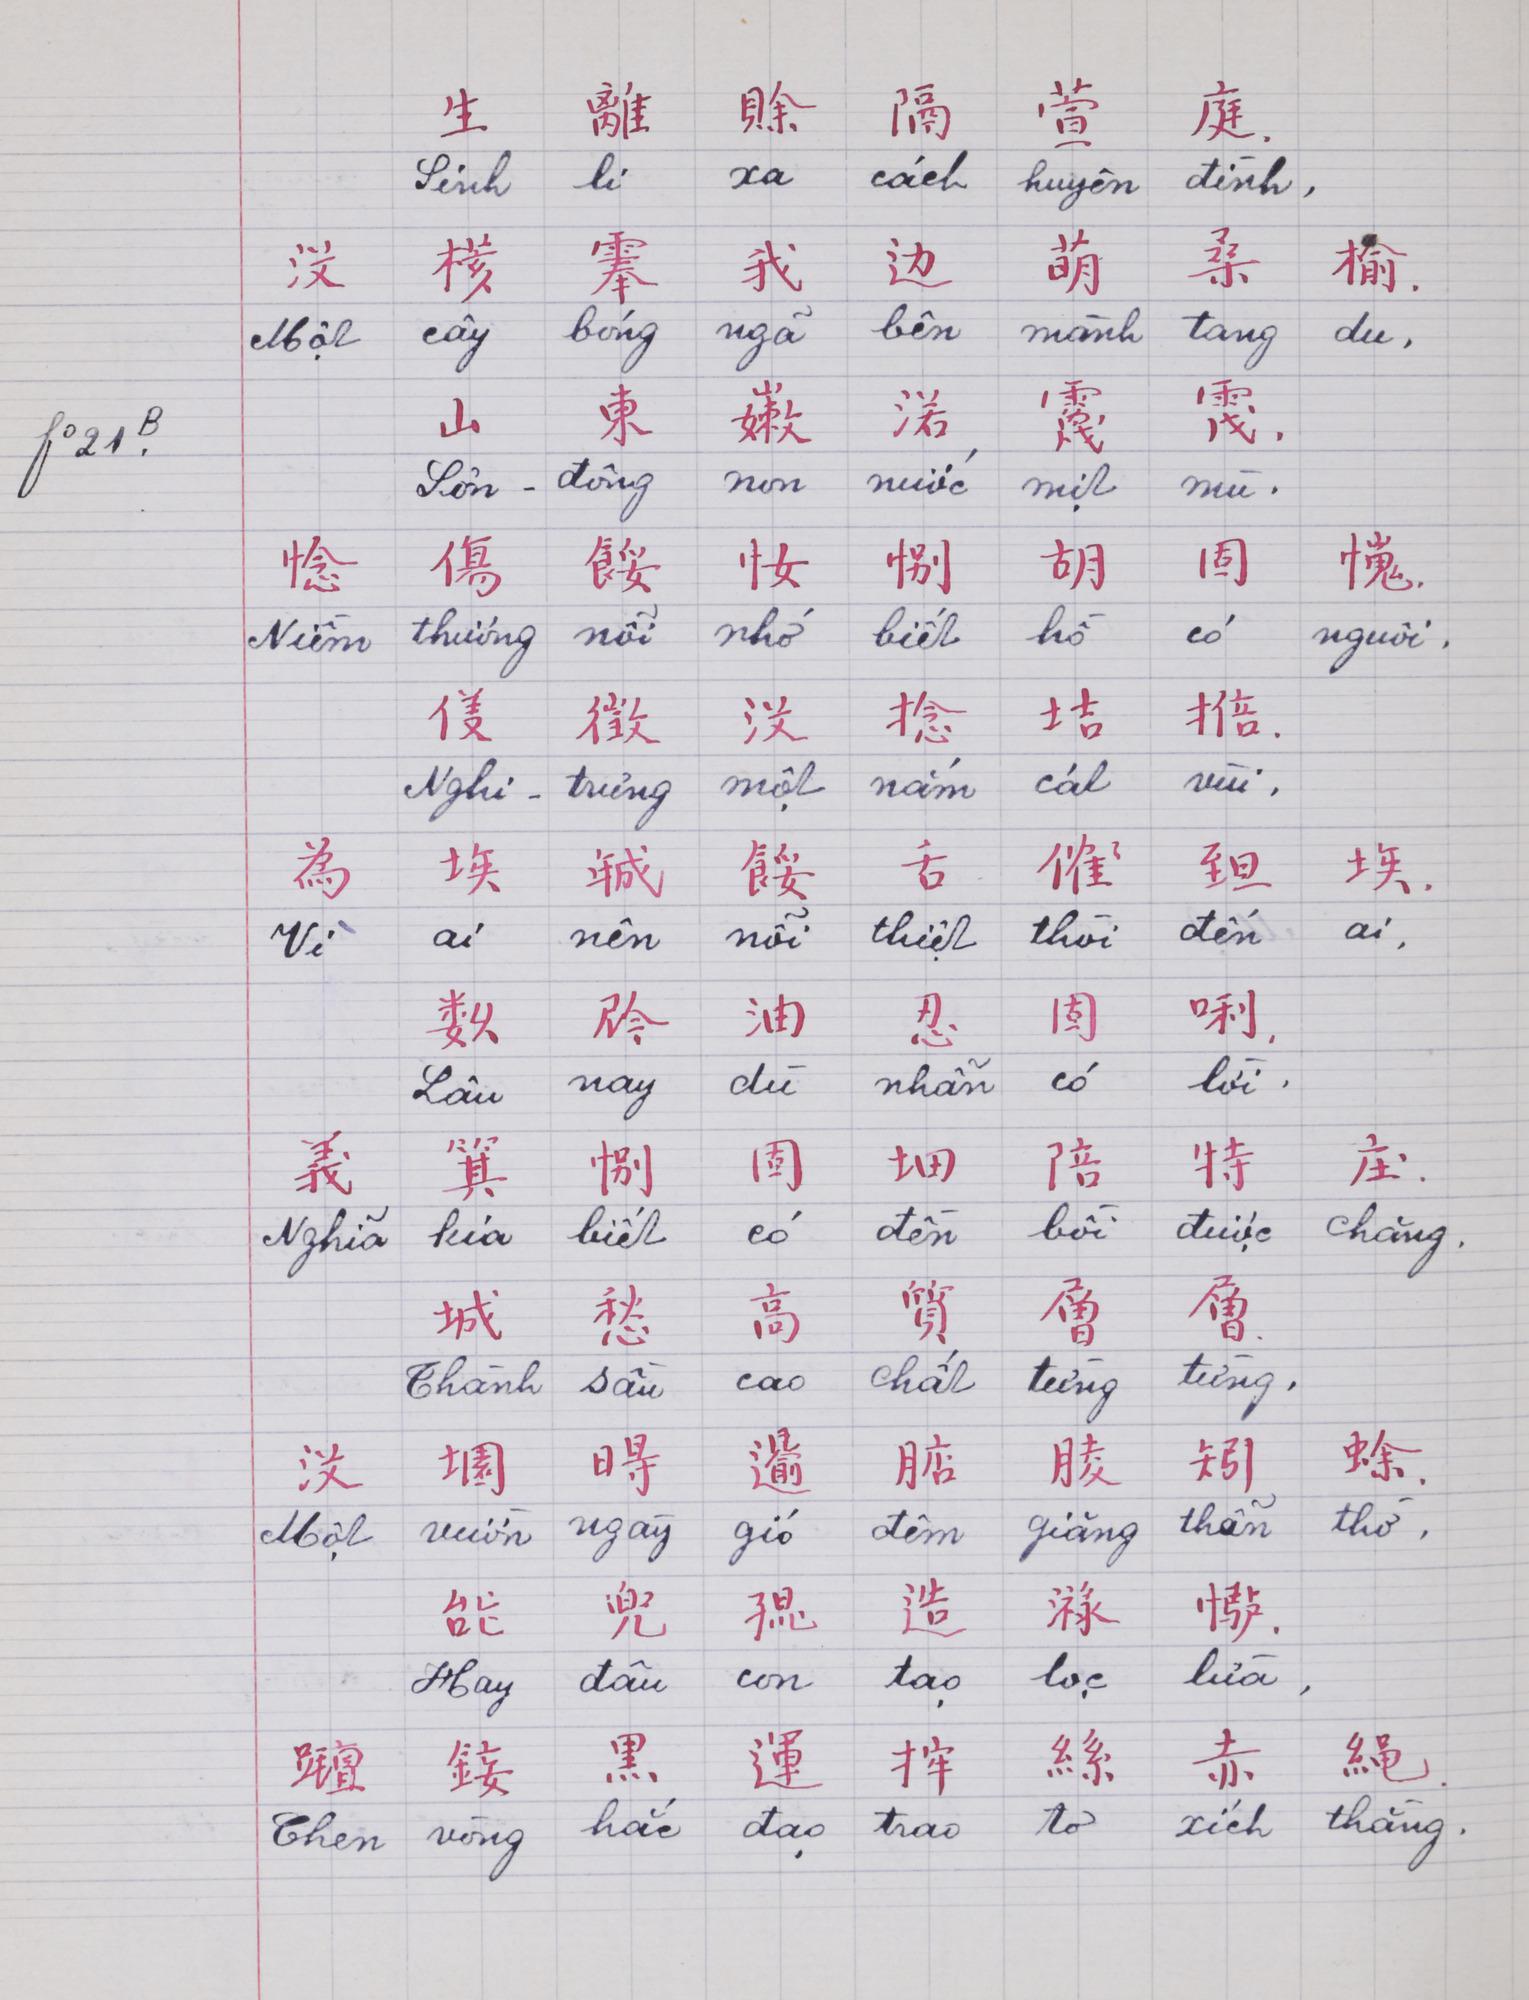 生 離 賒 隔 萱 庭.
Sinh li xa cách huyên đình,
沒 核 䨦 我 边 萌 桑 榆.
Một cây bóng ngã bên mành tang du,
山 東 嫩 渃
f° 21 B.
Sơn - đông non nước mịt mù.
惗 傷 餒 怓 𢚸 胡 固
Niềm thương nỗi nhớ biết hồ có người.
沒 捻 𡋥
Nghi - trưng một nắm cát vùi,
為 埃 餒 舌 催 𦤾 埃.
Vì ai nên nỗi thiệt thòi đến ai,
数 油 忍 固 唎.
Lâu nay dù nhẫn có lời.
義 箕 固 陪 特 庄.
Nghĩa kia biết có đền bồi được chăng.
城 愁 高 質 層 層.
Thành sầu cao chất từng từng,
沒 園 𣈜 𩙌 店 𦝄 矧 蜍.
Một vườn ngày gió đêm giăng thẩn thơ,
咍 兜 𡥵 造 漉
Hay đâu con tạo lọc lừa,
黒 運 絲 赤 縄.
Then vòng hắc đạo trao tơ xích thằng.